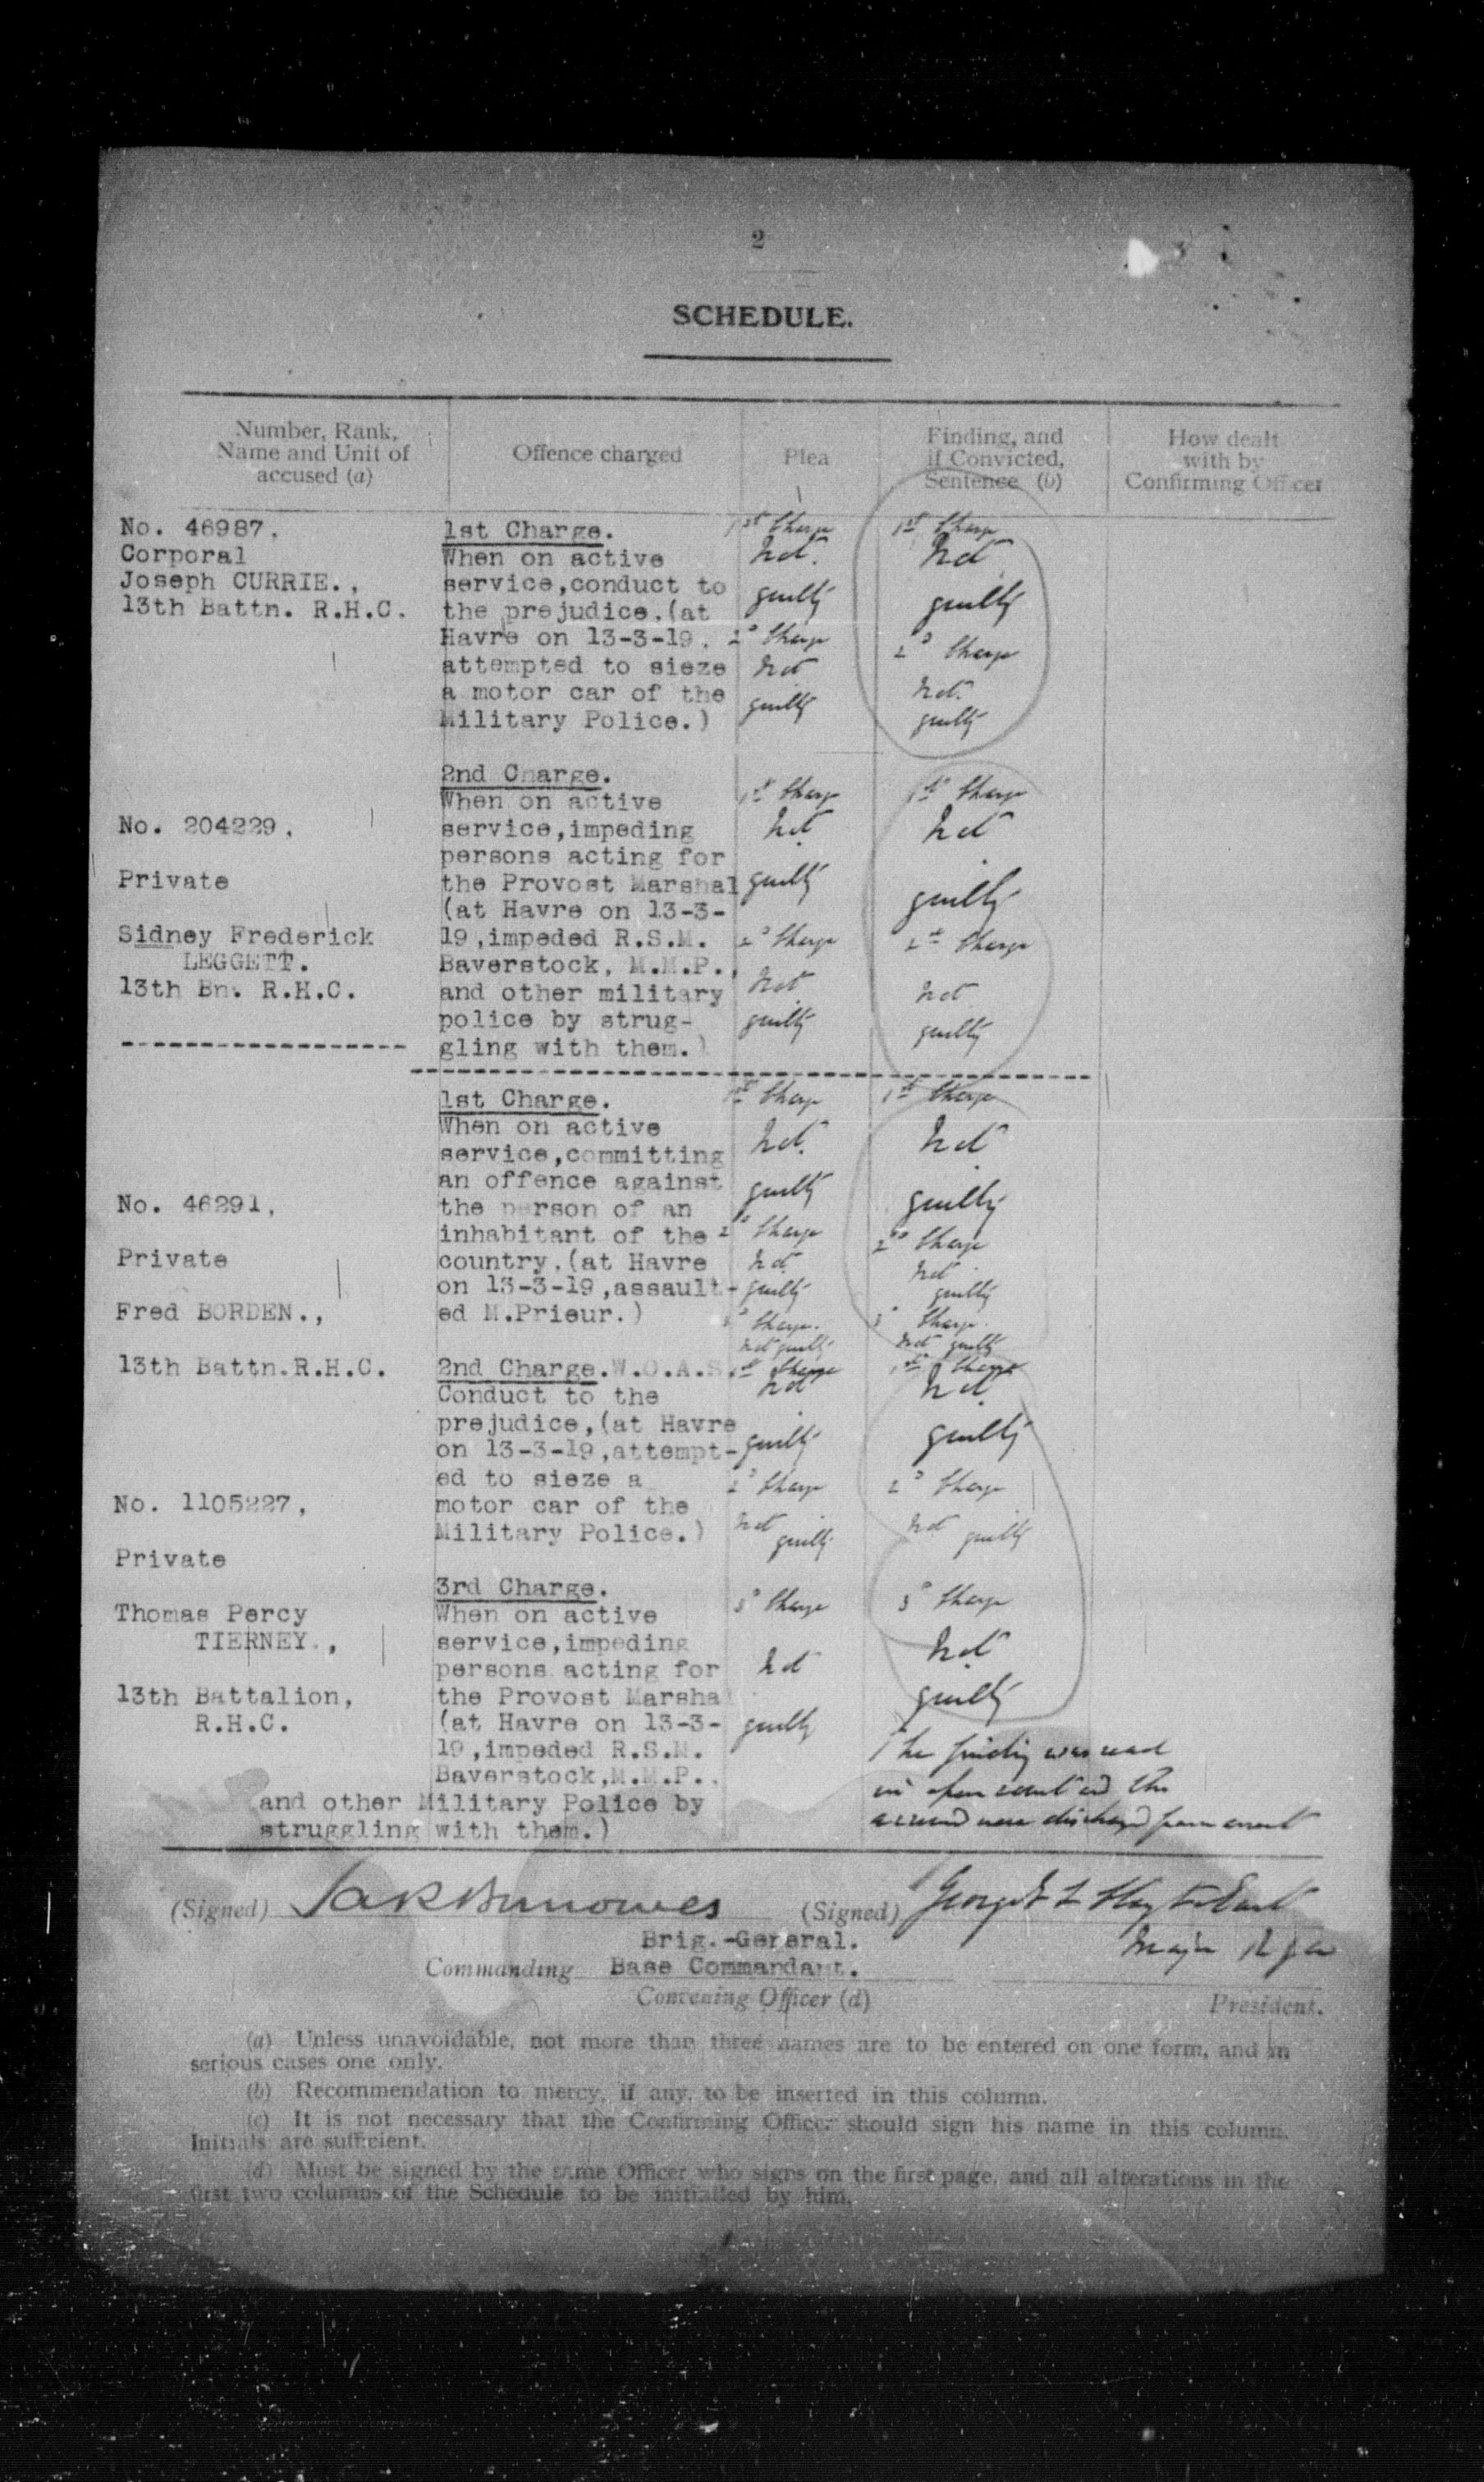 2
SCHEDULE.
Number, Rank,
Name and Unit of
accused (a)
Offence charged
Plea
Finding, and
if Convicted,
Sentence (b)
How dealt
with by
Confirming Officer
No. 46987,
Corporal
Joseph CURRIE.,
13th Battn. R.H.C.
1st Charge.
When on active
service,conduct to
the prejudice.(at
Havre on 13-3-19.
attempted to sieze
a motor car of the
Military Police.)
1st Charge
Not
guilty
2d Charge
Not
guilty
1st Charge
Not
guilty
2d Charge
Not
guilty
No. 204229,
Private
Sidney Frederick
LEGGETT.
13th Bn. R.H.C.
2nd Charge.
When on active
service,impeding
persons acting for
the Provost Marshal
(at Havre on 13-3-
19,impeded R.S.M.
Baverstock, M.M.P.,
and other military
police by strug-
gling with them.)
1st Charge
Not
guilty
2d Charge
Not
guilty
1st Charge
Not
guilty
2nd Charge
Not
guilty
No. 46291,
Private
Fred BORDEN.,
13th Battn.R.H.C.
1st Charge.
When on active
service,committing
an offence against
the person of an
inhabitant of the
country.(at Havre
on 13-3-19,assault-
ed M.Prieur.)
1st Charge
Not
guilty
2d Charge
Not
guilty
3d Charge.
Not guilty
1st Charge
Not
guilty
2nd Charge
Not
guilty
3d Charge.
Not guilty
2nd Charge.W.O.A.S.
Conduct to the
prejudice,(at Havre
on 13-3-19,attempt-
ed to sieze a
motor car of the
Military Police.)
No. 1105227,
Private
Thomas Percy
TIERNEY.,
13th Battalion,
R.H.C.
3rd Charge.
When on active
service,impeding
persons acting for
the Provost Marshal
(at Havre on 13-3-
19,impeded R.S.M.
Baverstock,M.M.P.,
and other Military Police by
struggling with them.)
1st Charge
Not
guilty
2d Charge
Not
guilty
3d Charge
Not
guilty
1st Charge
Not
guilty
2d Charge
Not guilty
3d Charge
Not
guilty
The finding was read
in open court and the
accused were discharged from arrest
(Signed)
(Signed)
Brig.-General.
Major
Commanding Base Commandant.
Convening Officer (d)
President.
(a) Unless unavoidable, not more than three names are to be entered on one form, and in
serious cases one only.
(b) Recommendation to mercy, if any, to be inserted in this column.
(c) It is not necessary that the Confirming Officer should sign his name in this column.
Initials are sufficient.
(d) Must be signed by the same Officer who signs on the first page, and all alterations in the
first two columns of the Schedule to be initialled by him.